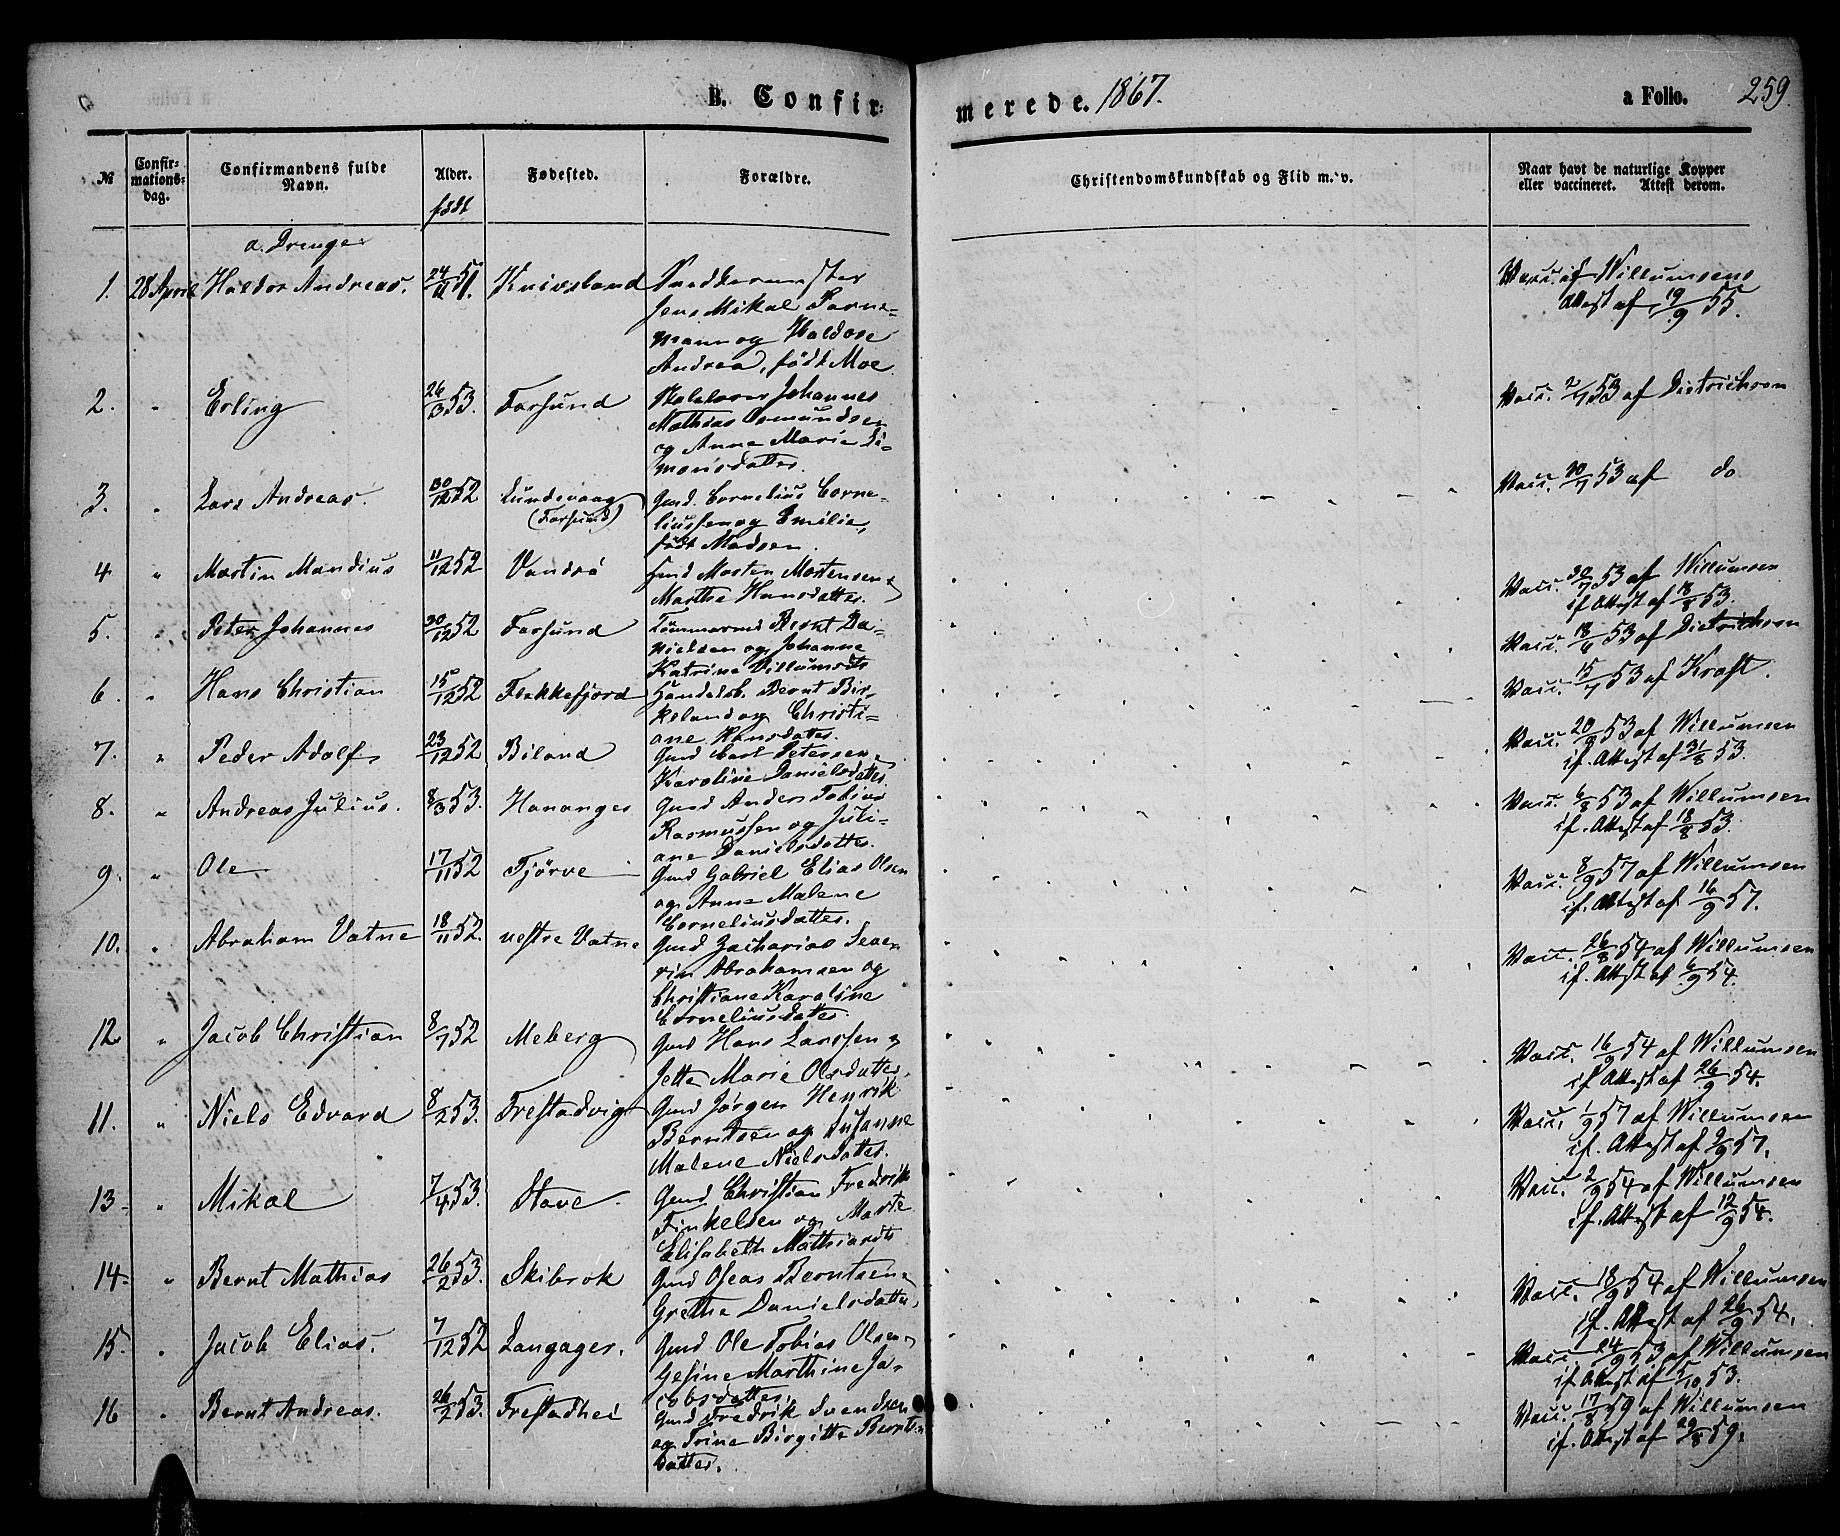 B. Confir=
merede. 1867.
a Folio. 259
№
Confir-
mations-
dag.
Confirmandens fulde
Navn.
Alder.
født
Fødested.
Forældre.
Christendomskundskab og Flid m. v.
Naar havt de naturlige Kopper
eller vaccineret. Attest derom.
a. Drenge
1. 28 April Haldor Andreas. 24/11 51. Knivsland Snedkermester
Jens Mikal
mann og Haldore
Andrea, født Moe
Vacc. if. Willumsens
Attest af 19/9 55.
2. " Erling 26/3 53. Farsund Johannes
Mathias Osmundsen
og Anne Marie Si-
monsdatter.
Vacc. 2/7 53 af Dietrichson
3. " Lars Andreas 30/12 52 Lundevaag
(Farsund)
Gmd. Cornelius Corne-
liussen og Emilie,
født Madsen.
Vacc. 30/7 53 af do
4 " Martin Mandius 11/12 52 Vandsø Gmd Morten Mortensen
Marthe Hansdatter.
Vacc. 30/7 53 af Willumsen
if. Attest af 18/8 53.
5. " Peter Johannes 30/12 52 Farsund Tømmermd Bernt Da-
nielsen og Johanne
Katrine Villumsdtr
Vacc. 18/6 53 af Dietrichson
6. " Hans Christian 15/12 52 Flekkefjord Handelsb. Bernt Bir-
keland og Christi-
ane Hansdatter.
Vacc. 15/7 53 af Kraft.
7. " Peder Adolf 23/12 52 Biland Gmd Carl Petersen
Karoline Danielsdatter
Vacc. 20/8 53 af Willumsen
if. Attest af 31/8 53.
8. " Andreas Julius. 8/3 53. Hananger Gmd Anders Tobias
Rasmussen og Juli-
ane Danielsdatter.
Vacc. 6/8 53 af Willumsen
if. Attest af 18/8 53.
9. " Ole 17/11 52 Tjørve Gmd Gabriel Elias Olsen
og Anne Malene
Corneliusdatter.
Vacc. 8/9 57 af Willumsen
if. Attest af 16/9 57.
10. " Abraham Vatne 18/11 52. vestre Vatne Gmd Zacharias Seve
rin Abrahamsen og
Christiane Karoline
Corneliusdatter
Vacc. 26/8 54 af Willumsen
if. Attest af 6/9 54.
12 " Jacob Christian 8/9 52 Meberg Gmd Hans Larssen
Jette Marie Olsdatter.
Vacc. 16/9 54 af Willumsen
if Attest af 26/9 54.
11. " Niels Edvard 8/2 53. Frestadvig Gmd Jørgen Henrik
Berntsen og Susanne
Malene Nielsdatter.
Vacc. 1/9 57 af Willumsen
if. Attest af 9/9 57.
13 " Mikal 7/4 53. Stave. Gmd Christian Fredrik
Finkelsen og Marte
Elisabeth Mathiasdtr
Vacc. 2/9 54 af Willumsen
if. Attest af 12/9 54.
14 " Bernt Mathias 26/2 53. Skibrok Gmd Oseas Berntsen
Grethe Danielsdatter,
Vacc. 18/9 54 af Willumsen
if. Attest af 26/9 54.
15. " Jacob Elias. 7/12 52 Langager. Gmd Ole Tobias Olsen
Gesine Marthine Ja-
cobsdatter,
Vacc. 24/9 53 af Willumsen
if Attest af 5/10 53.
16 " Bernt Andreas. 26/2 53. Frestadhei Gmd Fredrik Svendsen
og Trine Birgitte Bernts-
datter.
Vacc. 17/8 59 af Willumsen
if. Attest af 29/8 59.